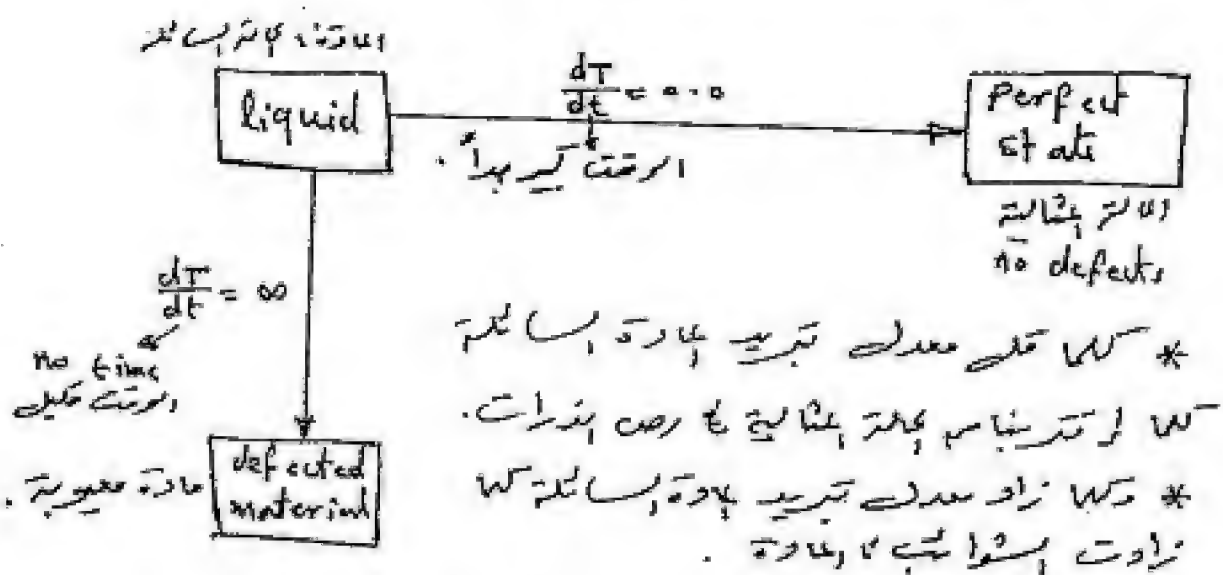 المادة في الحالة السائلة
liquid
dT/dt = 0.0
الوقت كبير جداً.
Perfect
state
الحالة المثالية
no defects
dT/dt = ∞
no time
الوقت قليل
defected
material
مادة معيوبة.
* كلما قل معدل تبريد المادة السائلة
كلما اقتربنا من الحالة المثالية في رص الذرات.
* وكلما زاد معدل تبريد المادة السائلة كلما
زادت الشوائب في المادة.